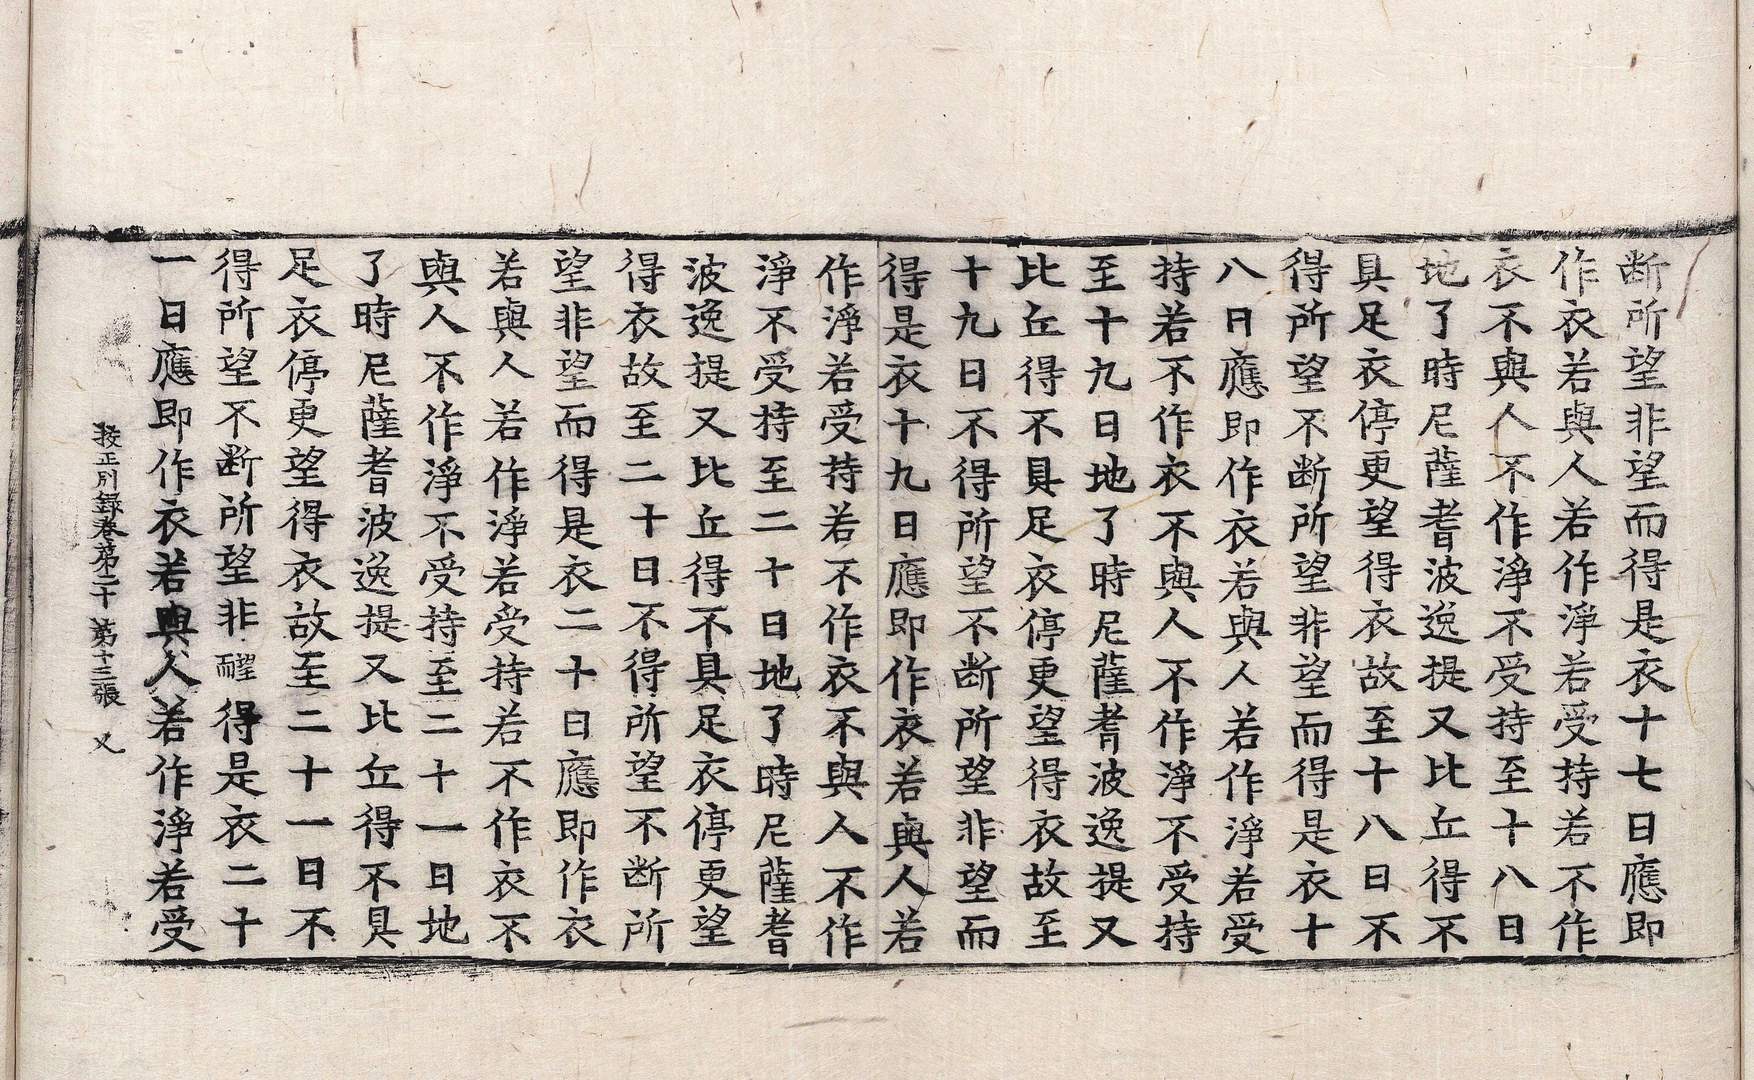 断所望非望而得是衣十七日應即
作衣若與人若作淨若受持若不作
衣不與人不作淨不受持至十八日
地了時尼薩耆波逸提又比丘得不
具足衣停更望得衣故至十八日不
得所望不断所望非望而得是衣十
八日應即作衣若與人若作淨若受
持若不作衣不與人不作淨不受持
至十九日地了時尼薩耆波逸提又
比丘得不具足衣停更望得衣故至
十九日不得所望不断所望非望而
得是衣十九日應即作衣若與人若
作淨若受持若不作衣不與人不作
淨不受持至二十日地了時尼薩耆
波逸提又比丘得不具足衣停更望
得衣故至二十日不得所望不断所
望非望而得是衣二十日應即作衣
若與人若作淨若受持若不作衣不
與人不作淨不受持至二十一日地
了時尼薩耆波逸提又比丘得不具
足衣停更望得衣故至二十一日不
得所望不断所望非望而得是衣二十
一日應即作衣若與人若作淨若受
挍正別録卷第二十 第十三張 又